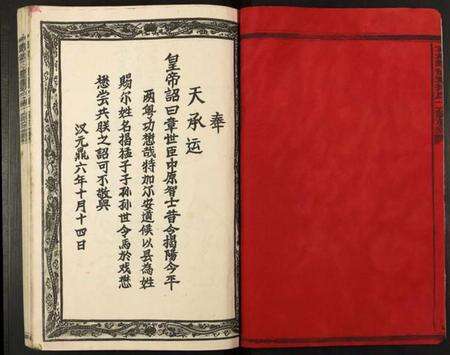 奉
天承运
皇帝詔曰章世臣中原智士昔令揭陽今平
两粤功懋哉特加尔安道侯以县為姓
賜尔姓名揭猛子子孫孫世令焉於戏懋
懋尝共朕之詔可不敬與
汉元鼎六年十月十四日